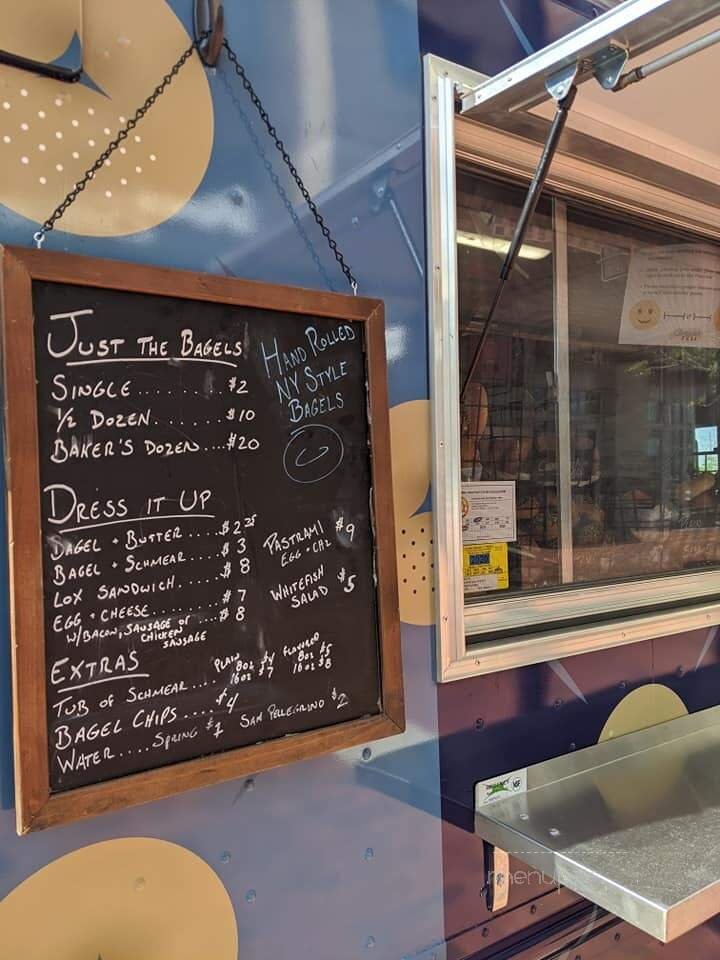 JUST THE BAGELS
SINGLE.......... $2
1/2 DOZEN....... $10
BAKER'S DOZEN... $20
HAND ROLLED
NY STYLE
BAGELS
DRESS IT UP
BAGEL + BUTTER..... $2 25
BAGEL + SCHMEAR.... $3
LOX SANDWICH...... $8
EGG + CHEESE....... $7
W/BACON, SAUSAGE OR $8
CHICKEN
SAUSAGE
PASTRAMI $9
EGG + CHZ
WHITEFISH $5
SALAD
EXTRAS
PLAIN FLAVORED
TUB OF SCHMEAR.... 8oz $4 8oz $5
16oz $7 16oz $8
BAGEL CHIPS.... $4
WATER.... SPRING $1 SAN PELLEGRINO $2
NSF
menu